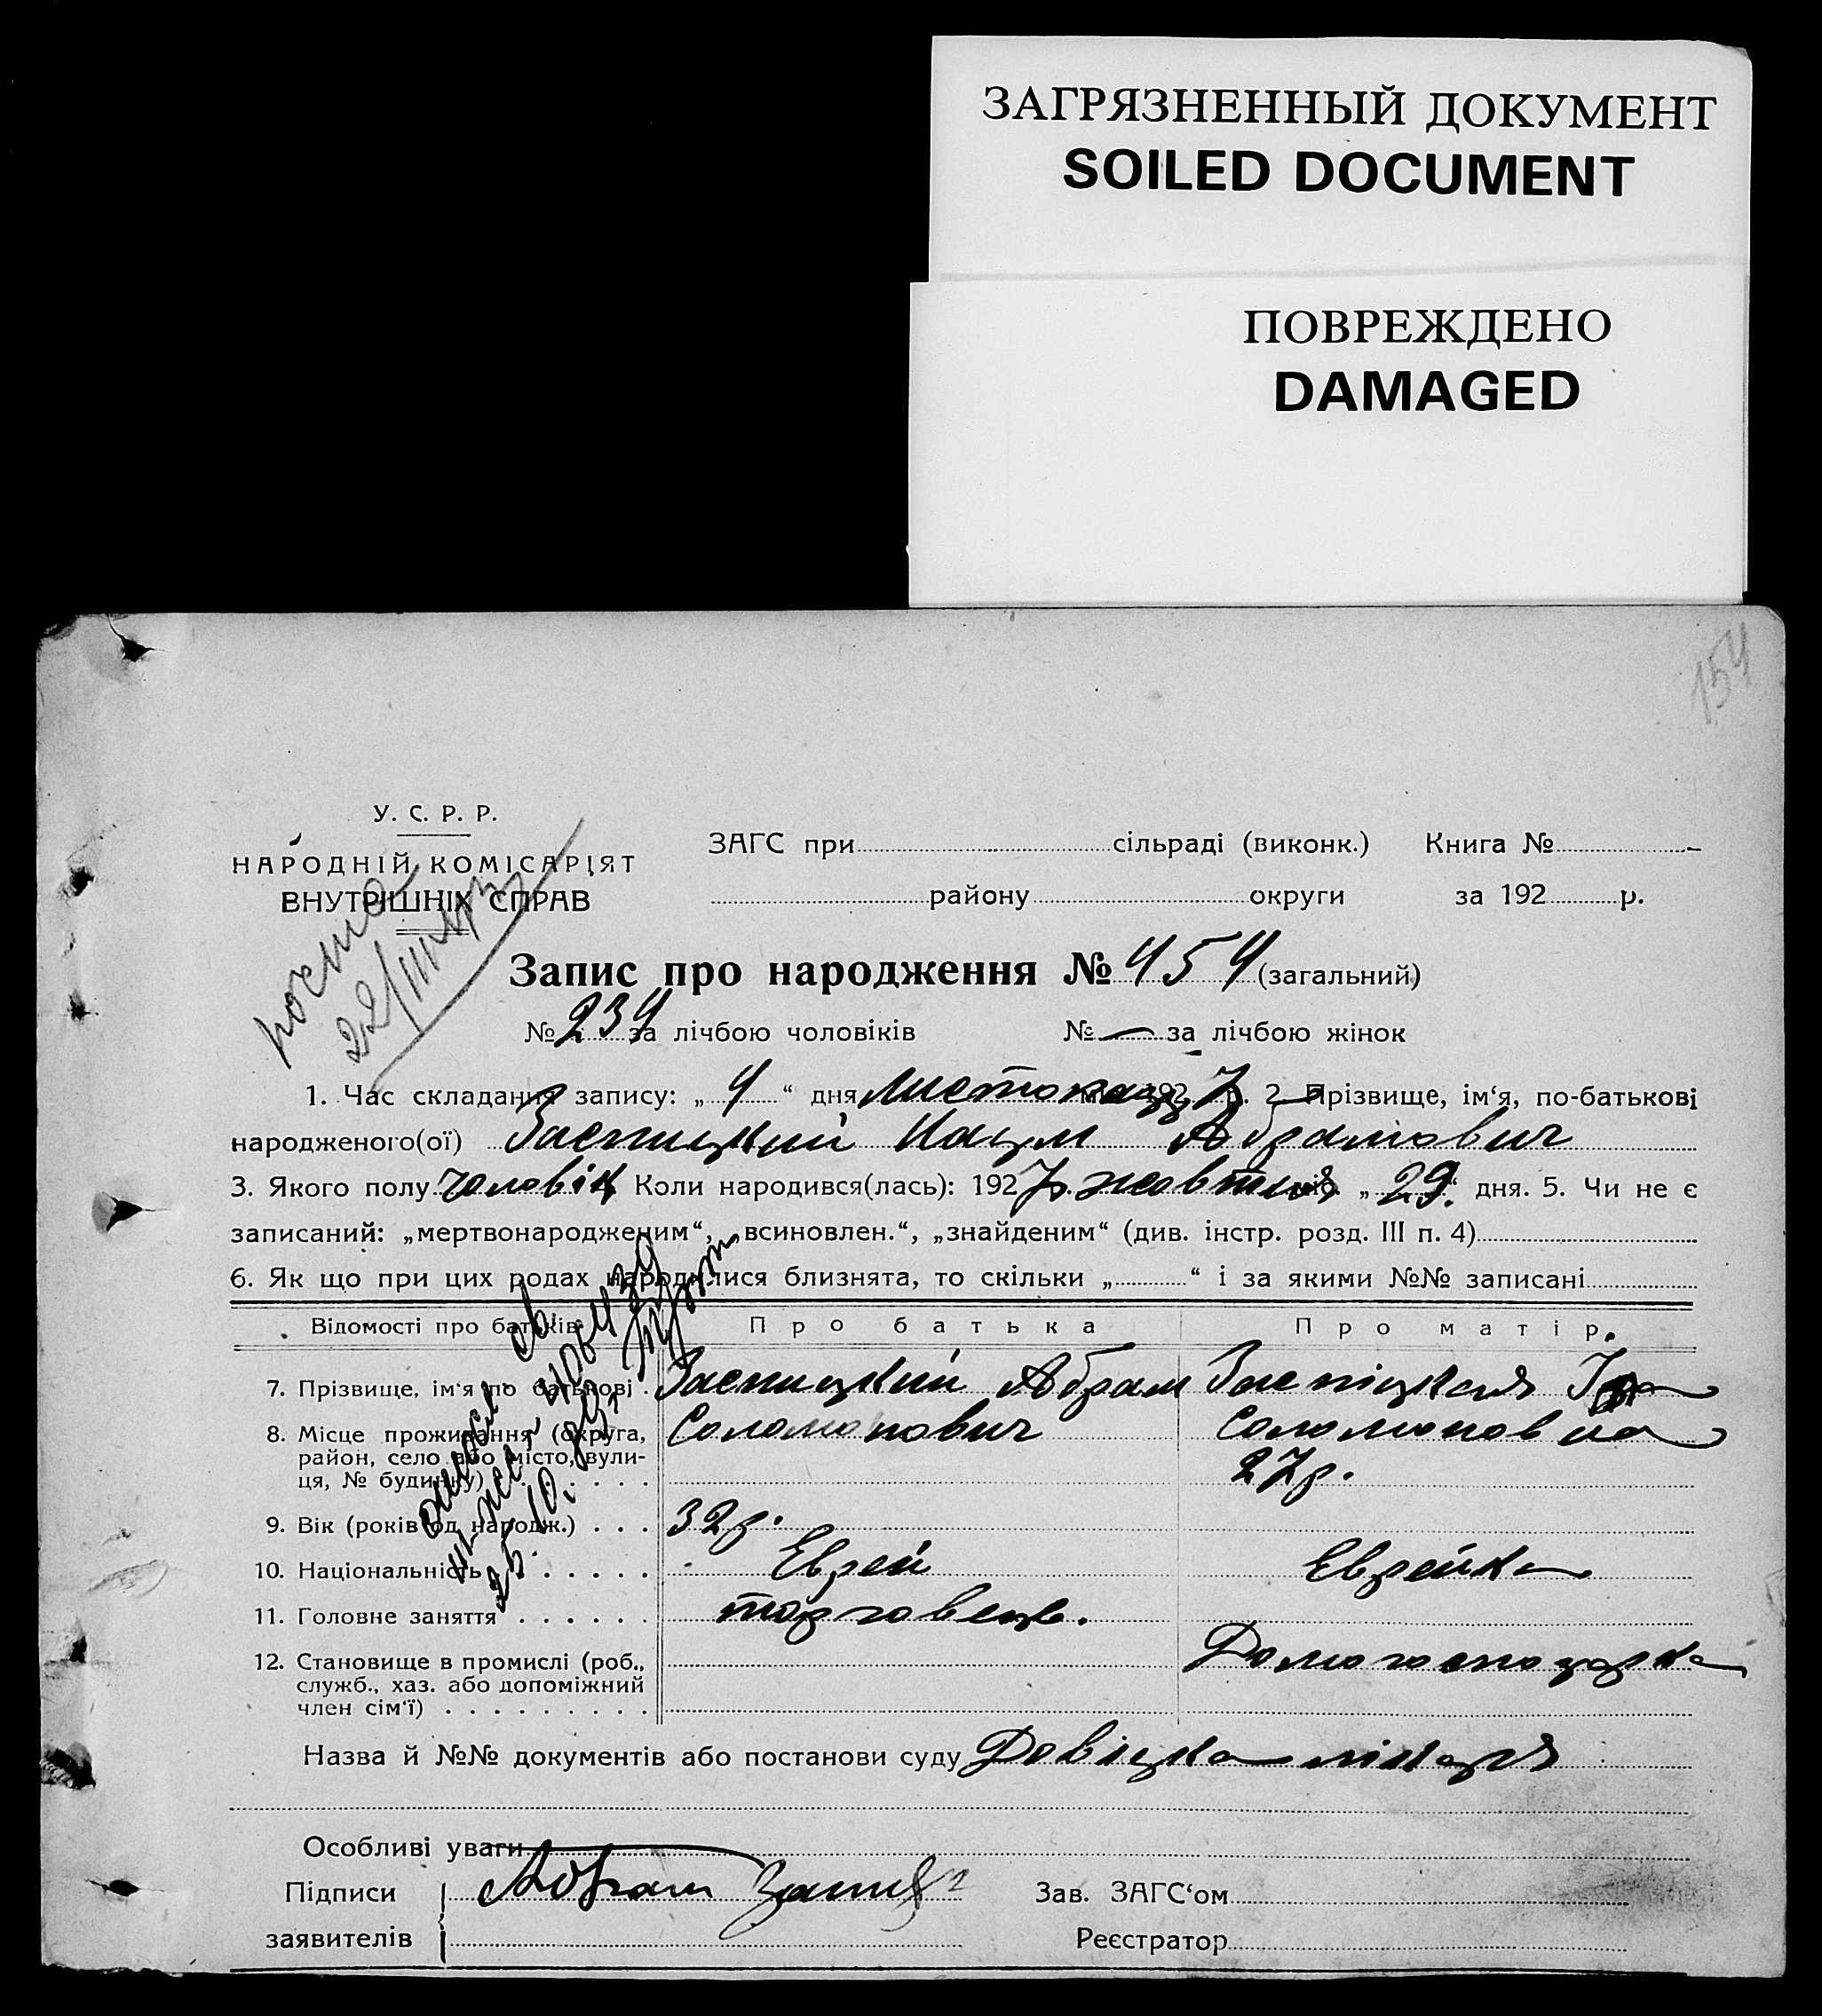 ЗАГРЯЗНЕННЫЙ ДОКУМЕНТ
SOILED DOCUMENT
ПОВРЕЖДЕНО
DAMAGED
154
У. С. Р. Р.
НАРОДНІЙ КОМІСАРІЯТ
ВНУТРІШНІХ СПРАВ
ЗАГС при сільраді (виконк.) Книга №
району округи за 192 р.
Запис про народження № 454 (загальний)
№ 234 за лічбою чоловіків № — за лічбою жінок
1. Час складання запису: „ 4 “ дня листопада 192 7 р. 2. Прізвище, ім‘я, по-батькові
народженого(ої) Абрамович
3. Якого полу чоловік Коли народився(лась): 192 7 р. жовтня „ 29 “ дня. 5. Чи не є
записаний: „мертвонародженим“, „всиновлен.“, „знайденим“ (див. інстр. розд. III п. 4)
6. Як що при цих родах народилися близнята, то скільки „ “ і за якими №№ записані
Відомості про батьків Про батька Про матір.
7. Прізвище, ім‘я по батькові Абрам
8. Місце проживання (округа, Соломонович Соломоновна
район, село або місто, вули- 27 р.
ця, № будинку)
9. Вік (років од народж.) 32 р.
10. Національність Еврей Еврейка
11. Головне заняття торговець.
12. Становище в промислі (роб., Домогосподарка
служб., хаз. або допоміжний
член сім‘ї)
Назва й №№ документів або постанови суду Довідка лікаря
Особливі уваги
Підписи Абрам Зав. ЗАГС‘ом
заявителів Реєстратор